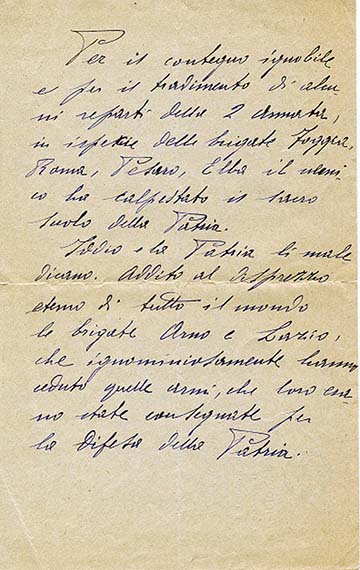 Per il contegno ignobile
e per il tradimento di alcu
ni reparti della 2 armata,
in ispecie delle brigate Foggia,
Roma, Pesaro, Elba il nemi
co ha calpestato il sacro
suolo della Patria.
Iddio e la Patria li male
dicano. Addito al disprezzo
eterno di tutto il mondo
le brigate Arno e Lazio,
che ignominiosamente hanno
ceduto quelle armi, che loro era
no state consegnate per
la difesa della Patria.